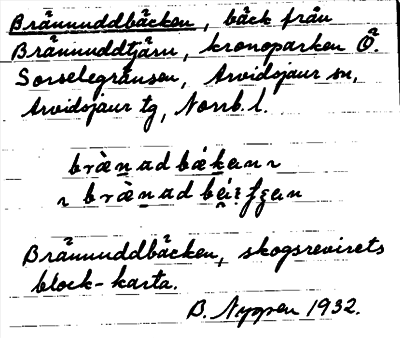 Brännuddbäcken, bäck från
Brännuddtjärn, kronoparken Ö.
Sorselegränsen, Arvidsjaur sn,
Arvidsjaur tg, Norrb. l.
Brännuddbäcken, skogsrevirets
block-karta.
B. Nygren 1932.